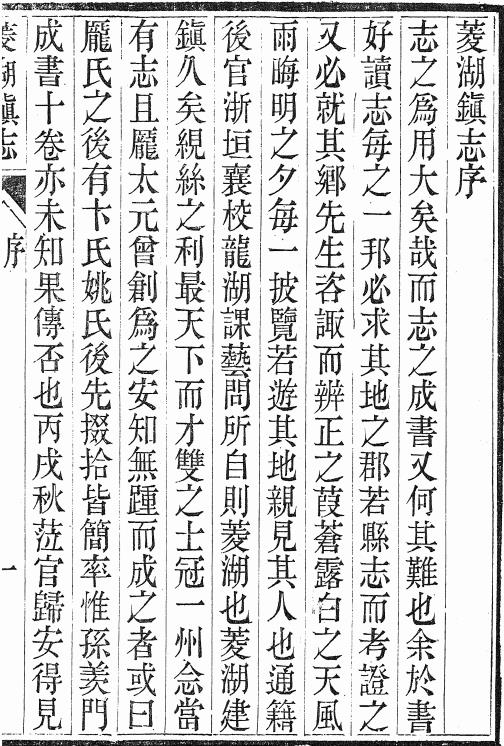 菱湖鎭志序
志之爲用大矣哉而志之成書又何其難也余於書
好讀志每之一邦必求其地之郡若縣志而考證之
又必就其鄉先生咨諏而辨正之葭蒼露白之天風
雨晦明之夕每一披覽若遊其地親見其人也通籍
後官浙垣襄校龍湖課藝問所自則菱湖也菱湖建
鎭久矣絸絲之利最天下而才雙之士冠一州念當
有志且龐太元曾創爲之安知無踵而成之者或曰
龐氏之後有卞氏姚氏後先掇拾皆簡率惟孫羨門
成書十卷亦未知果傳否也丙戌秋莅官歸安得見
菱湖鎭志
序
一